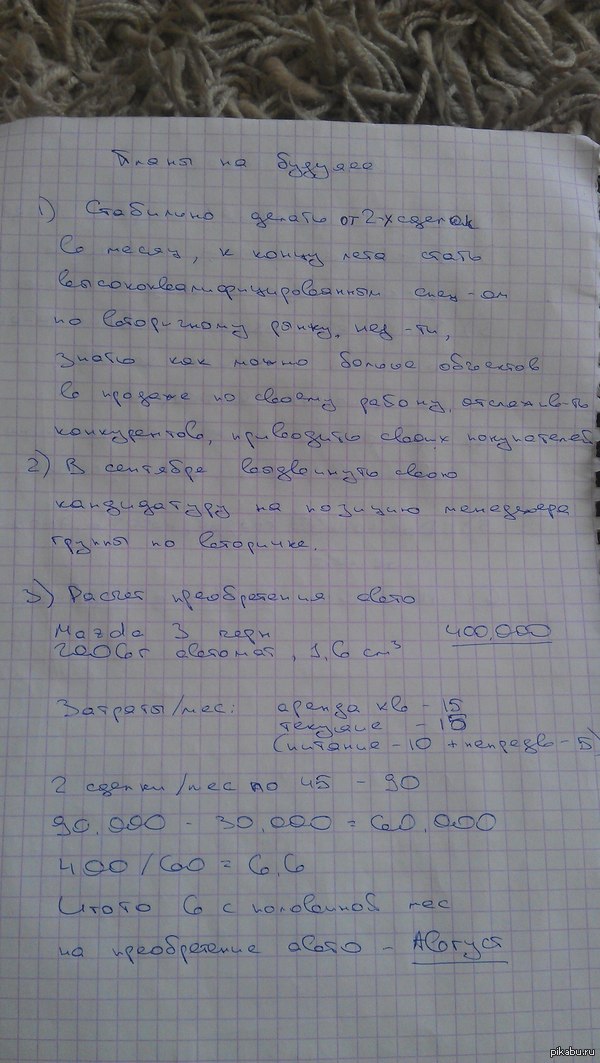 Планы на будущее
1) Стабильно делать от 2-х сделок
в месяц, к концу лета стать
высококвалифицированным спец-ом
по вторичному рынку нед-ти,
Знать как можно больше объектов
в продаже по своему району, отслежив-ть
конкурентов, приводить своих покупателей
2) В сентябре выдвинуть свою
кандидатуру на позицию менеджера
группы по вторичке.
3) Расчет преобретения авто
Mazda 3 черн 400,000
2006г автомат, 1,6 см³
Затраты/мес: аренда кв - 15
текущие - 15
(питание - 10 + непредв - 5)
2 сделки/мес по 45 - 90
90.000 - 30,000 = 60,000
400/60 = 6,6
Итого 6 с половиной мес
на преобретение авто - Август
pikabu.ru